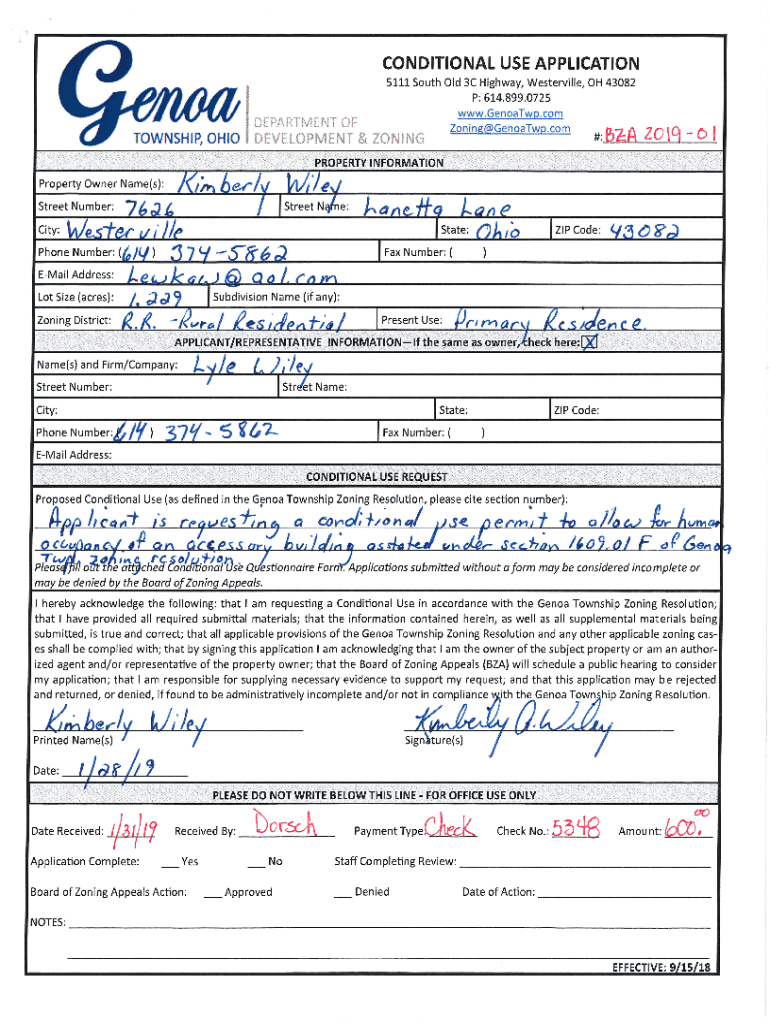 CONDITIONAL USE APPLICATION
5111 South Old 3C Highway, Westerville, OH 43082
P: 614.899.0725
www.GenoaTwp.com
Zoning@GenoaTwp.com
#: BZA 2019-01
Genoa
TOWNSHIP, OHIO
DEPARTMENT OF
DEVELOPMENT & ZONING
PROPERTY INFORMATION
Property Owner Name(s): Kimberly Wiley
Street Number: 7626 Street Name: Lanetta Lane
City: Westerville State: Ohio ZIP Code: 43082
Phone Number: (614) 374-5862 Fax Number: ( )
E-Mail Address: Lewkaw@aol.com
Lot Size (acres): 1.229 Subdivision Name (if any):
Zoning District: R.R. -Rural Residential Present Use: Primary Residence.
APPLICANT/REPRESENTATIVE INFORMATION—If the same as owner, check here: X
Name(s) and Firm/Company: Lyle Wiley
Street Number: Street Name:
City: State: ZIP Code:
Phone Number: (614) 374-5862 Fax Number: ( )
E-Mail Address:
CONDITIONAL USE REQUEST
Proposed Conditional Use (as defined in the Genoa Township Zoning Resolution, please cite section number):
Applicant is requesting a conditional use permit to allow for human
occupancy of an accessory building as stated under section 1609.01 F of Genoa
Twp. zoning resolution.
Please fill out the attached Conditional Use Questionnaire Form. Applications submitted without a form may be considered incomplete or
may be denied by the Board of Zoning Appeals.
I hereby acknowledge the following: that I am requesting a Conditional Use in accordance with the Genoa Township Zoning Resolution;
that I have provided all required submittal materials; that the information contained herein, as well as all supplemental materials being
submitted, is true and correct; that all applicable provisions of the Genoa Township Zoning Resolution and any other applicable zoning cas-
es shall be complied with; that by signing this application I am acknowledging that I am the owner of the subject property or am an author-
ized agent and/or representative of the property owner; that the Board of Zoning Appeals (BZA) will schedule a public hearing to consider
my application; that I am responsible for supplying necessary evidence to support my request; and that this application may be rejected
and returned, or denied, if found to be administratively incomplete and/or not in compliance with the Genoa Township Zoning Resolution.
Kimberly Wiley Kimberly A. Wiley
Printed Name(s) Signature(s)
Date: 1/28/19
PLEASE DO NOT WRITE BELOW THIS LINE - FOR OFFICE USE ONLY
Date Received: 1/31/19 Received By: Dorsch Payment Type: Check Check No.: 5348 Amount: 600.00
Application Complete: ___ Yes ___ No Staff Completing Review:
Board of Zoning Appeals Action: ___ Approved ___ Denied Date of Action:
NOTES:
EFFECTIVE: 9/15/18